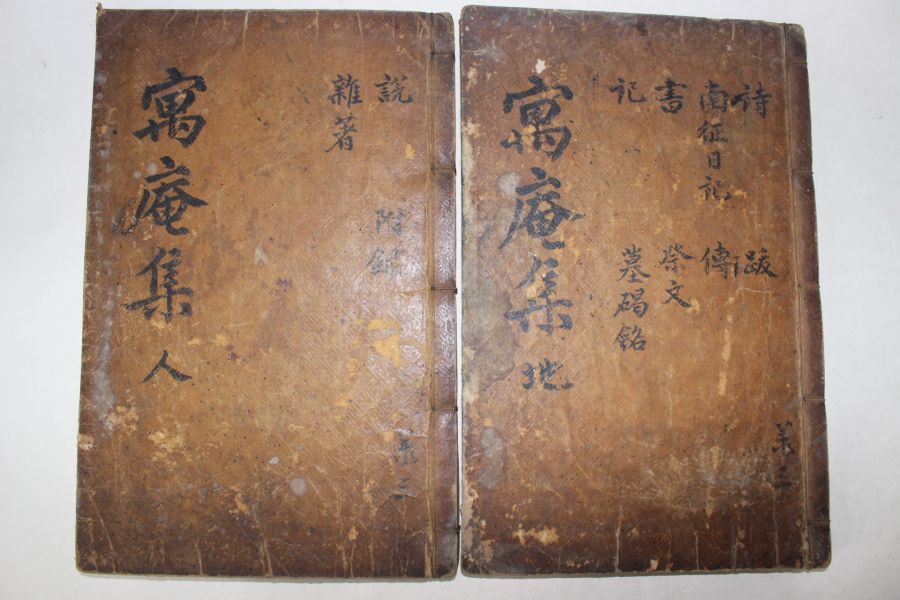 寓庵集 人
說 附錄
雜著
寓庵集 地
詩 跋
南征日記 傳
書 祭文
記 墓碣銘